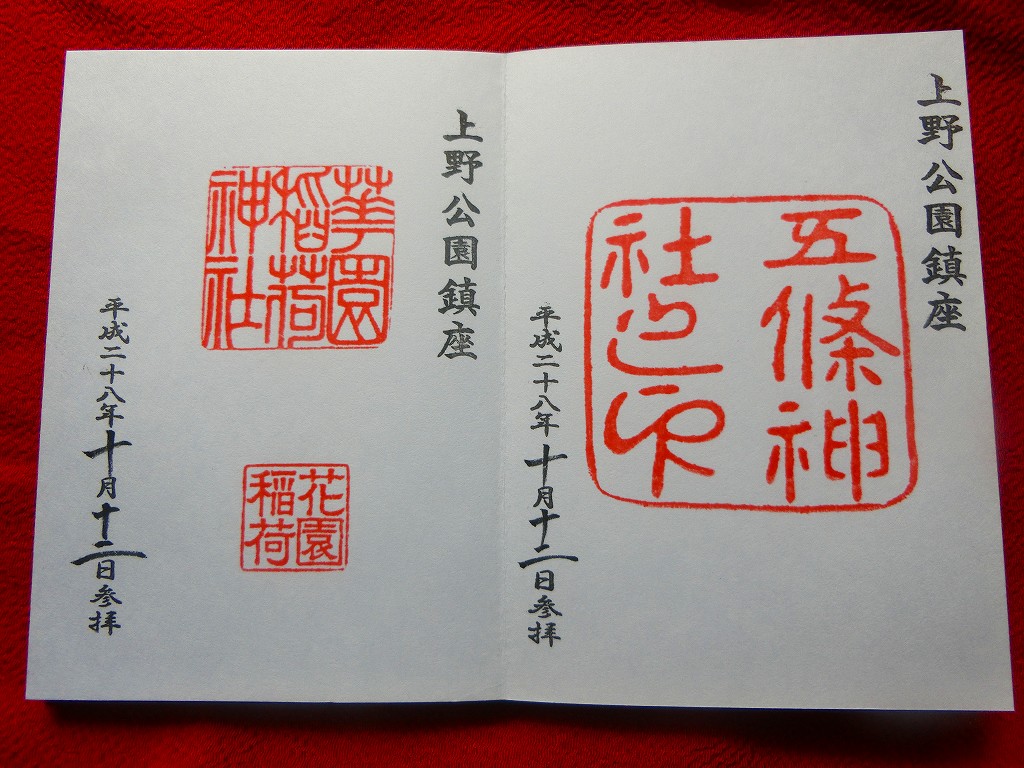 上野公園鎮座
五條神
社之印
平成二十八年十月十二日参拝
上野公園鎮座
華園
稲荷
神社
花園
稲荷
平成二十八年十月十二日参拝